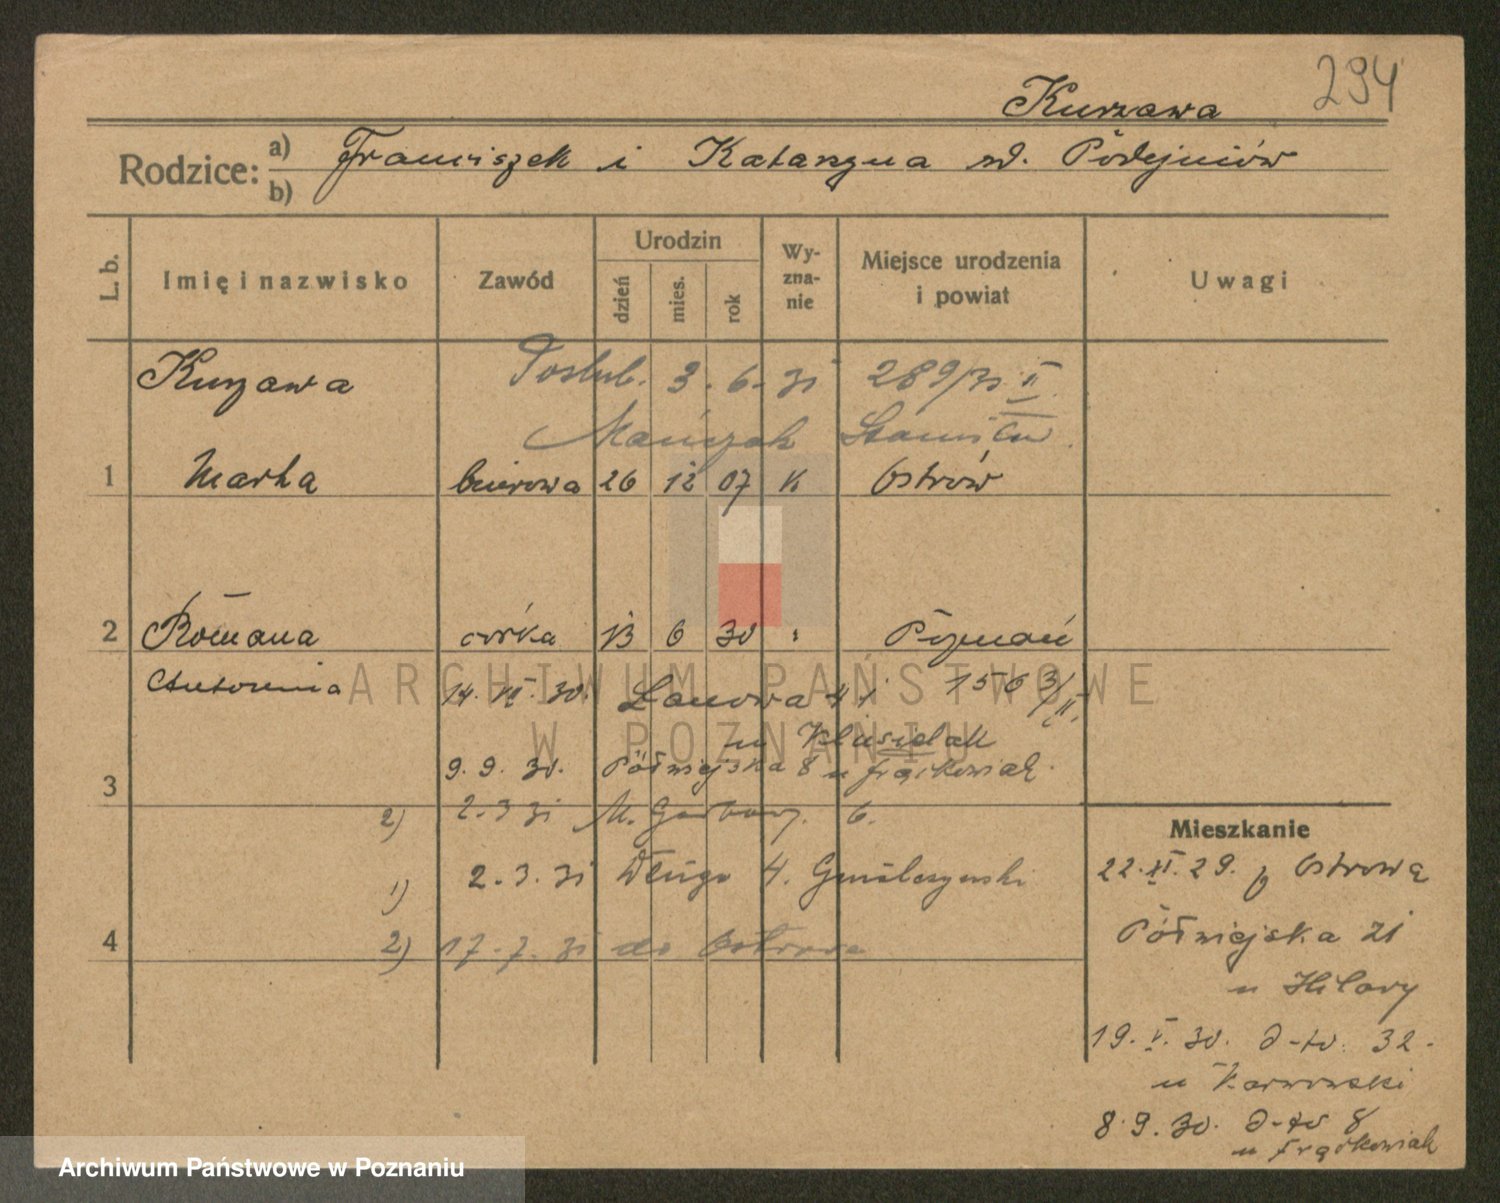 294
Kurzawa
Rodzice: a) Franciszek i Katarzyna zd.
b)
L. b. Imię i nazwisko Zawód Urodzin dzień mies. rok Wyznanie Miejsce urodzenia i powiat Uwagi
Kurzawa Poślub. 3. 6. 31 289/31 II
Mańczak Stanisław
1 Marta biurowa 26 12 07 K Ostrów
2 Romana córka 13 6 30 " Poznań
Antonina 14. VII. 30. Łanowa 156 3/II.
u
9. 9. 30. Półwiejska 8 u Frąckowiak.
3
2) 2. 3 31 M. Garbary. 6.
1) 2. 3. 31 Długa 4.
4 2) 17. 7. 31 do Ostrowa
Mieszkanie
22. XI. 29. z Ostrowa
Półwiejska 21
u Hilary
19. V. 30. d-to. 32.
u Karwowski
8. 9. 30. d-to 8
u Frąckowiak
ARCHIWUM PAŃSTWOWE
W POZNANIU
Archiwum Państwowe w Poznaniu